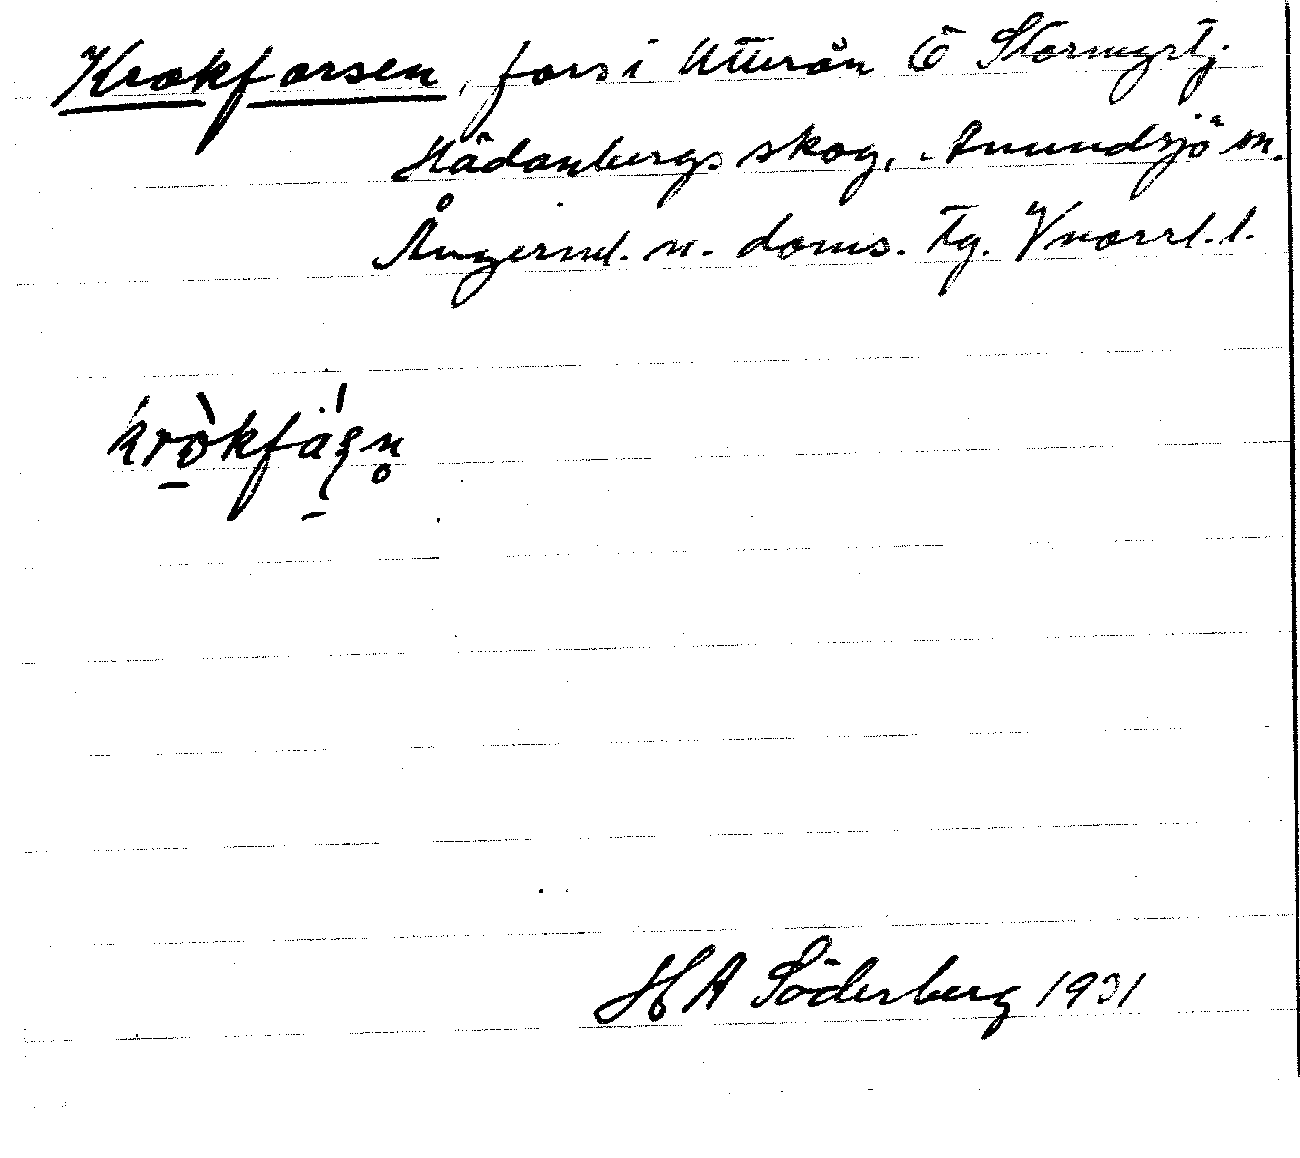 Krokforsen, fors i Utterån Ö Stormyrtj.
Hädanbergs skog, Anundsjö sn.
Ångerml. n. doms. tg. Vnorrl. l.
kròkfä́ʂn̥
H A Söderberg 1931